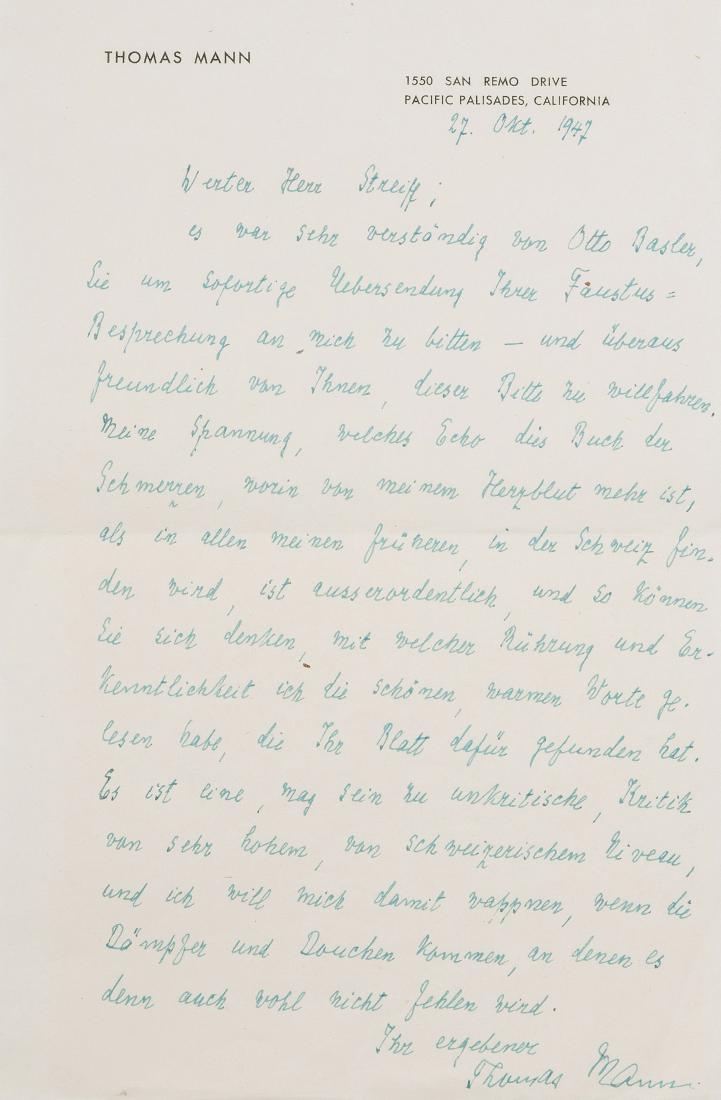 THOMAS MANN
1550 SAN REMO DRIVE
PACIFIC PALISADES, CALIFORNIA
27. Okt. 1947
Werter Herr Streiff;
es war sehr verständig von Otto Basler,
Sie um sofortige Uebersendung Ihrer Faustus=
Besprechung an mich zu bitten – und überaus
freundlich von Ihnen, dieser Bitte zu willfahren.
Meine Spannung, welches Echo dies Buch der
Schmerzen, worin von meinem Herzblut mehr ist,
als in allen meinen früheren, in der Schweiz fin-
den wird, ist ausserordentlich, und so können
Sie sich denken, mit welcher Rührung und Er-
kenntlichkeit ich die schönen, warmen Worte ge-
lesen habe, die Ihr Blatt dafür gefunden hat.
Es ist eine, mag sein zu unkritische, Kritik
von sehr hohem, von schweizerischem Niveau,
und ich will mich damit wappnen, wenn die
Dämpfer und Douchen kommen, an denen es
denn auch wohl nicht fehlen wird.
Ihr ergebener
Thomas Mann.